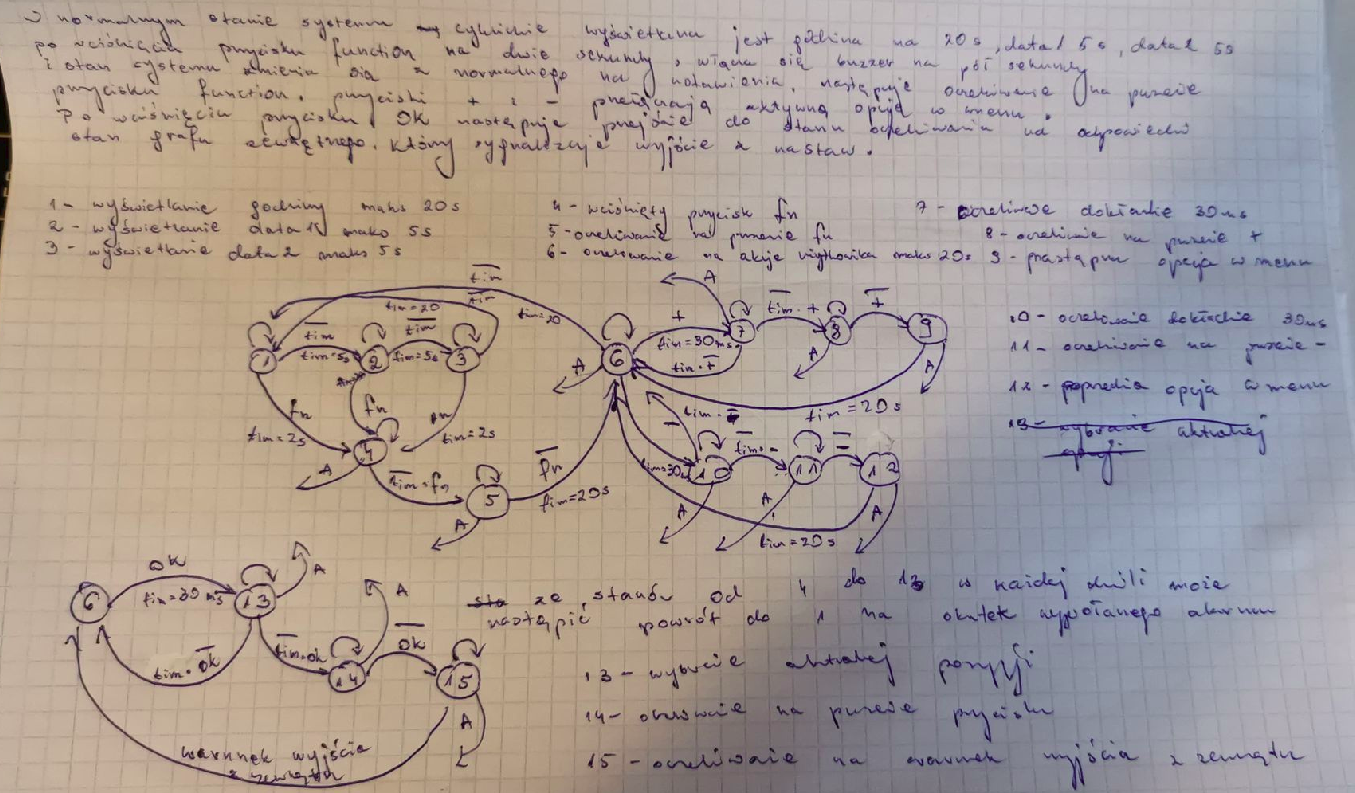 W normalnym stanie systemu cyklicznie wyświetlana jest godzina na 20s, data1 5s, data2 5s
po wciśnięciu przycisku function na dwie sekundy, włącza się buzzer na pół sekundy
i stan systemu zmienia się z normalnego na ustawienia, następuje oczekiwanie na puszcie
przycisku function. przyciski + i - przełączają aktywną opcję w menu.
Po wciśnięciu przycisku OK następuje przejście do stanu oczekiwania na odpowiedni
stan grafu zewnętrznego, który sygnalizuje wyjście z nastaw.
1- wyświetlanie godziny maks 20s
2- wyświetlanie data 1 maks 5s
3- wyświetlanie data 2 maks 5s
4- wciśnięty przycisk fn
5- oczekiwanie na puszcie fn
6- oczekiwanie na akcje użytkownika maks 20s
7- oczekiwanie dokładnie 30ms
8- oczekiwanie na puszcie +
9- następna opcja w menu
10- oczekiwanie dokładnie 30ms
11- oczekiwanie na puszcie -
12- poprzednia opcja w menu
13- wybranie aktualnej
opcji
tim
tim=20
tim
tim=20
1
tim
tim=5s
2
tim
tim=5s
3
fn
tim=2s
fn
fn
tim=2s
4
A
tim·fn
5
A
fn
tim=20s
6
A
+
tim=30ms
tim·+
7
A
tim·+
8
A
+
9
A
tim=20s
tim·-
-
tim=30ms
10
A
tim·-
11
A
-
12
A
tim=20s
6
OK
tim=30ms
13
A
tim·ok
tim·ok
14
A
ok
15
A
warunek wyjścia
z zewnątrz
ze stanów od 4 do 13 w każdej chwili może
nastąpić powrót do 1 na skutek wywołanego alarmu
13- wybranie aktualnej pozycji
14- oczekiwanie na puszcie przycisku
15- oczekiwanie na warunek wyjścia z zewnątrz